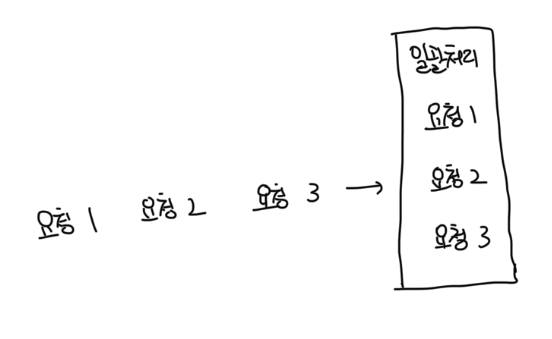 요청 1 요청 2 요청 3 →
일괄처리
요청 1
요청 2
요청 3